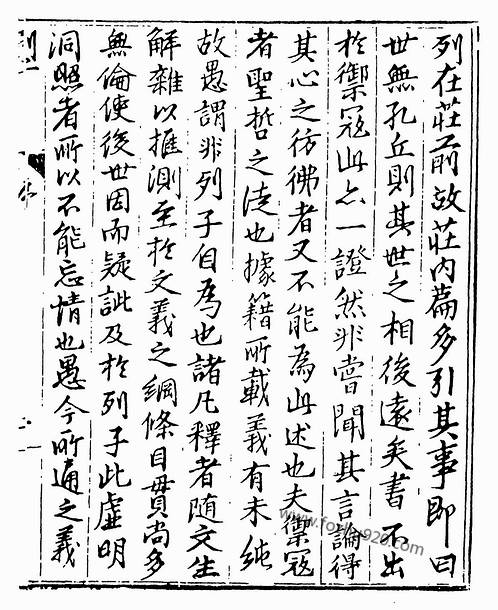 列在莊前故莊內篇多引其事即曰
世無孔丘則其世之相後遠矣書不出
於禦寇此亦一證然非嘗聞其言論得
其心之彷彿者又不能為此述也夫禦寇
者聖哲之徒也據籍所載義有未純
故愚謂非列子自為也諸凡釋者隨文生
解雜以推測至於文義之綱條目貫尚多
無倫使後世因而疑訿及於列子此虛明
洞照者所以不能忘情也愚今所通之義